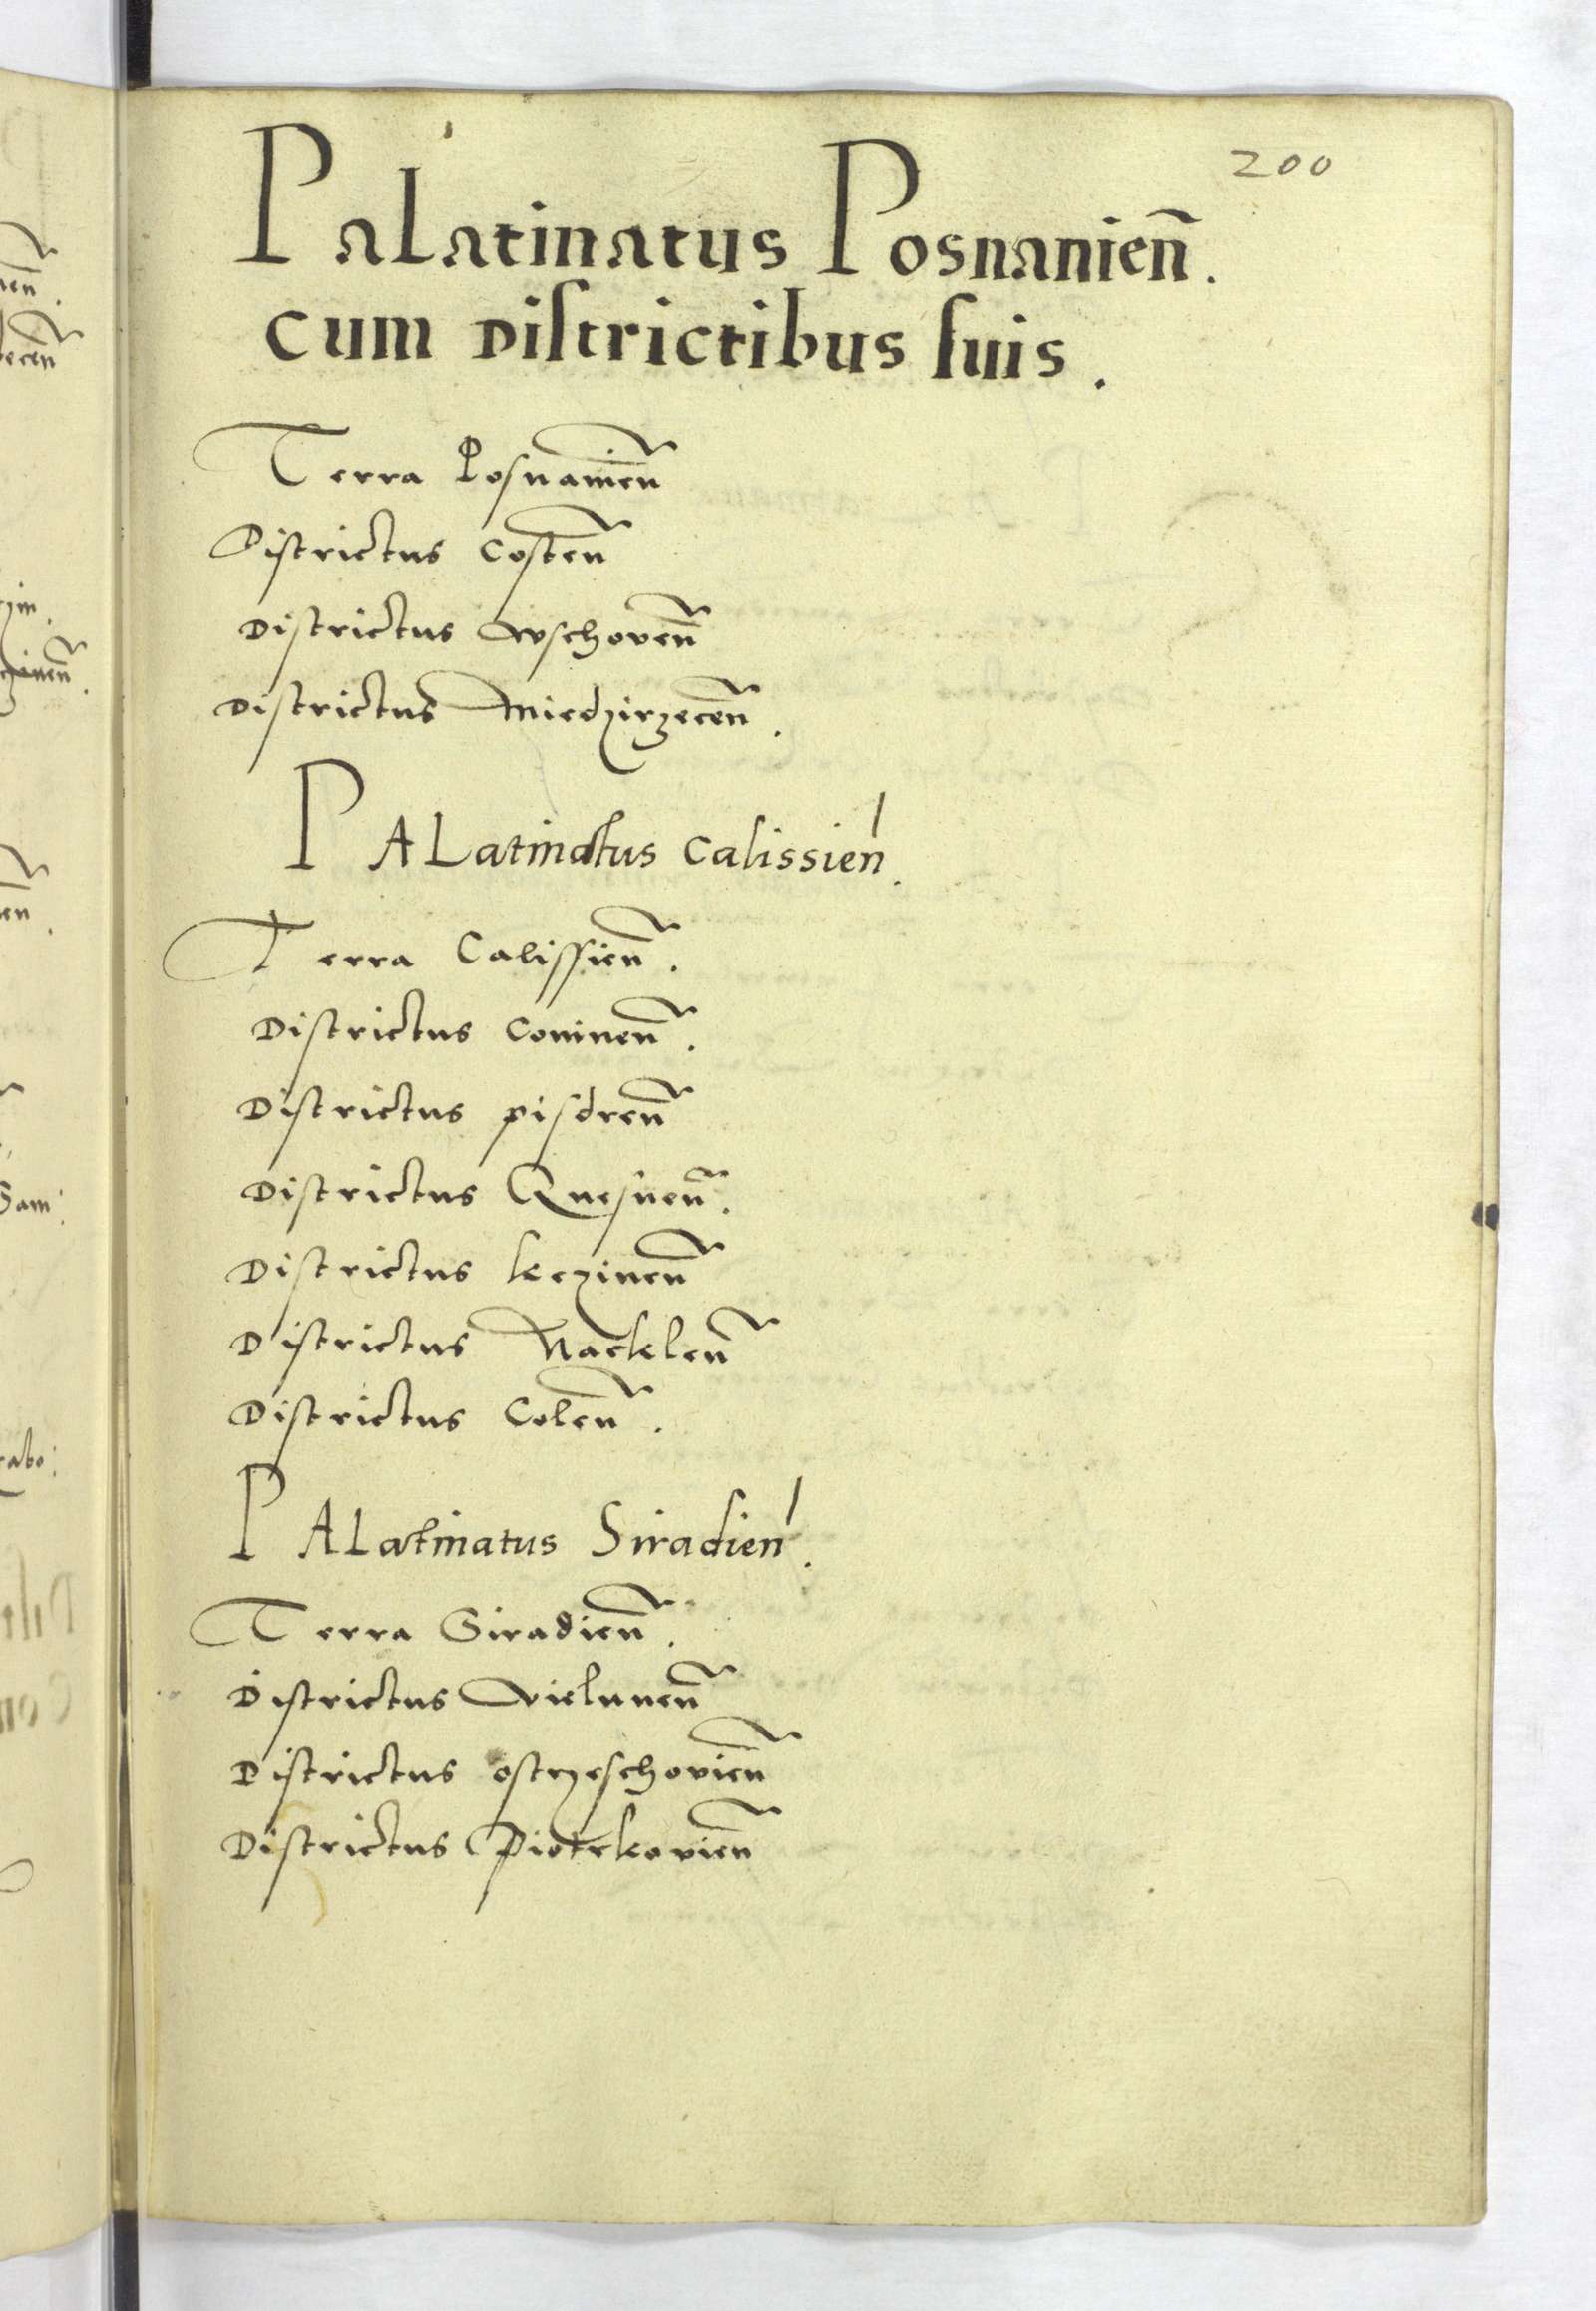 200
Palatinatus Posnanien̄.
cum diſtrictibus ſuis.
Terra Posnanien̄
Districtus Costen̄
Districtus Wschoven̄
Districtus Miedzirzecen̄.
PALatinatus Calissien̄.
Terra Calissien̄.
Districtus Coninen̄.
Districtus pisdren̄
Districtus Gnesnen̄.
Districtus kczinen̄
Districtus Nacklen̄
Districtus Colen̄.
PALatinatus Siradien̄.
Terra Siradien̄.
Districtus Vielunen̄
Districtus ostrzeschovien̄
Districtus Piotrkovien̄